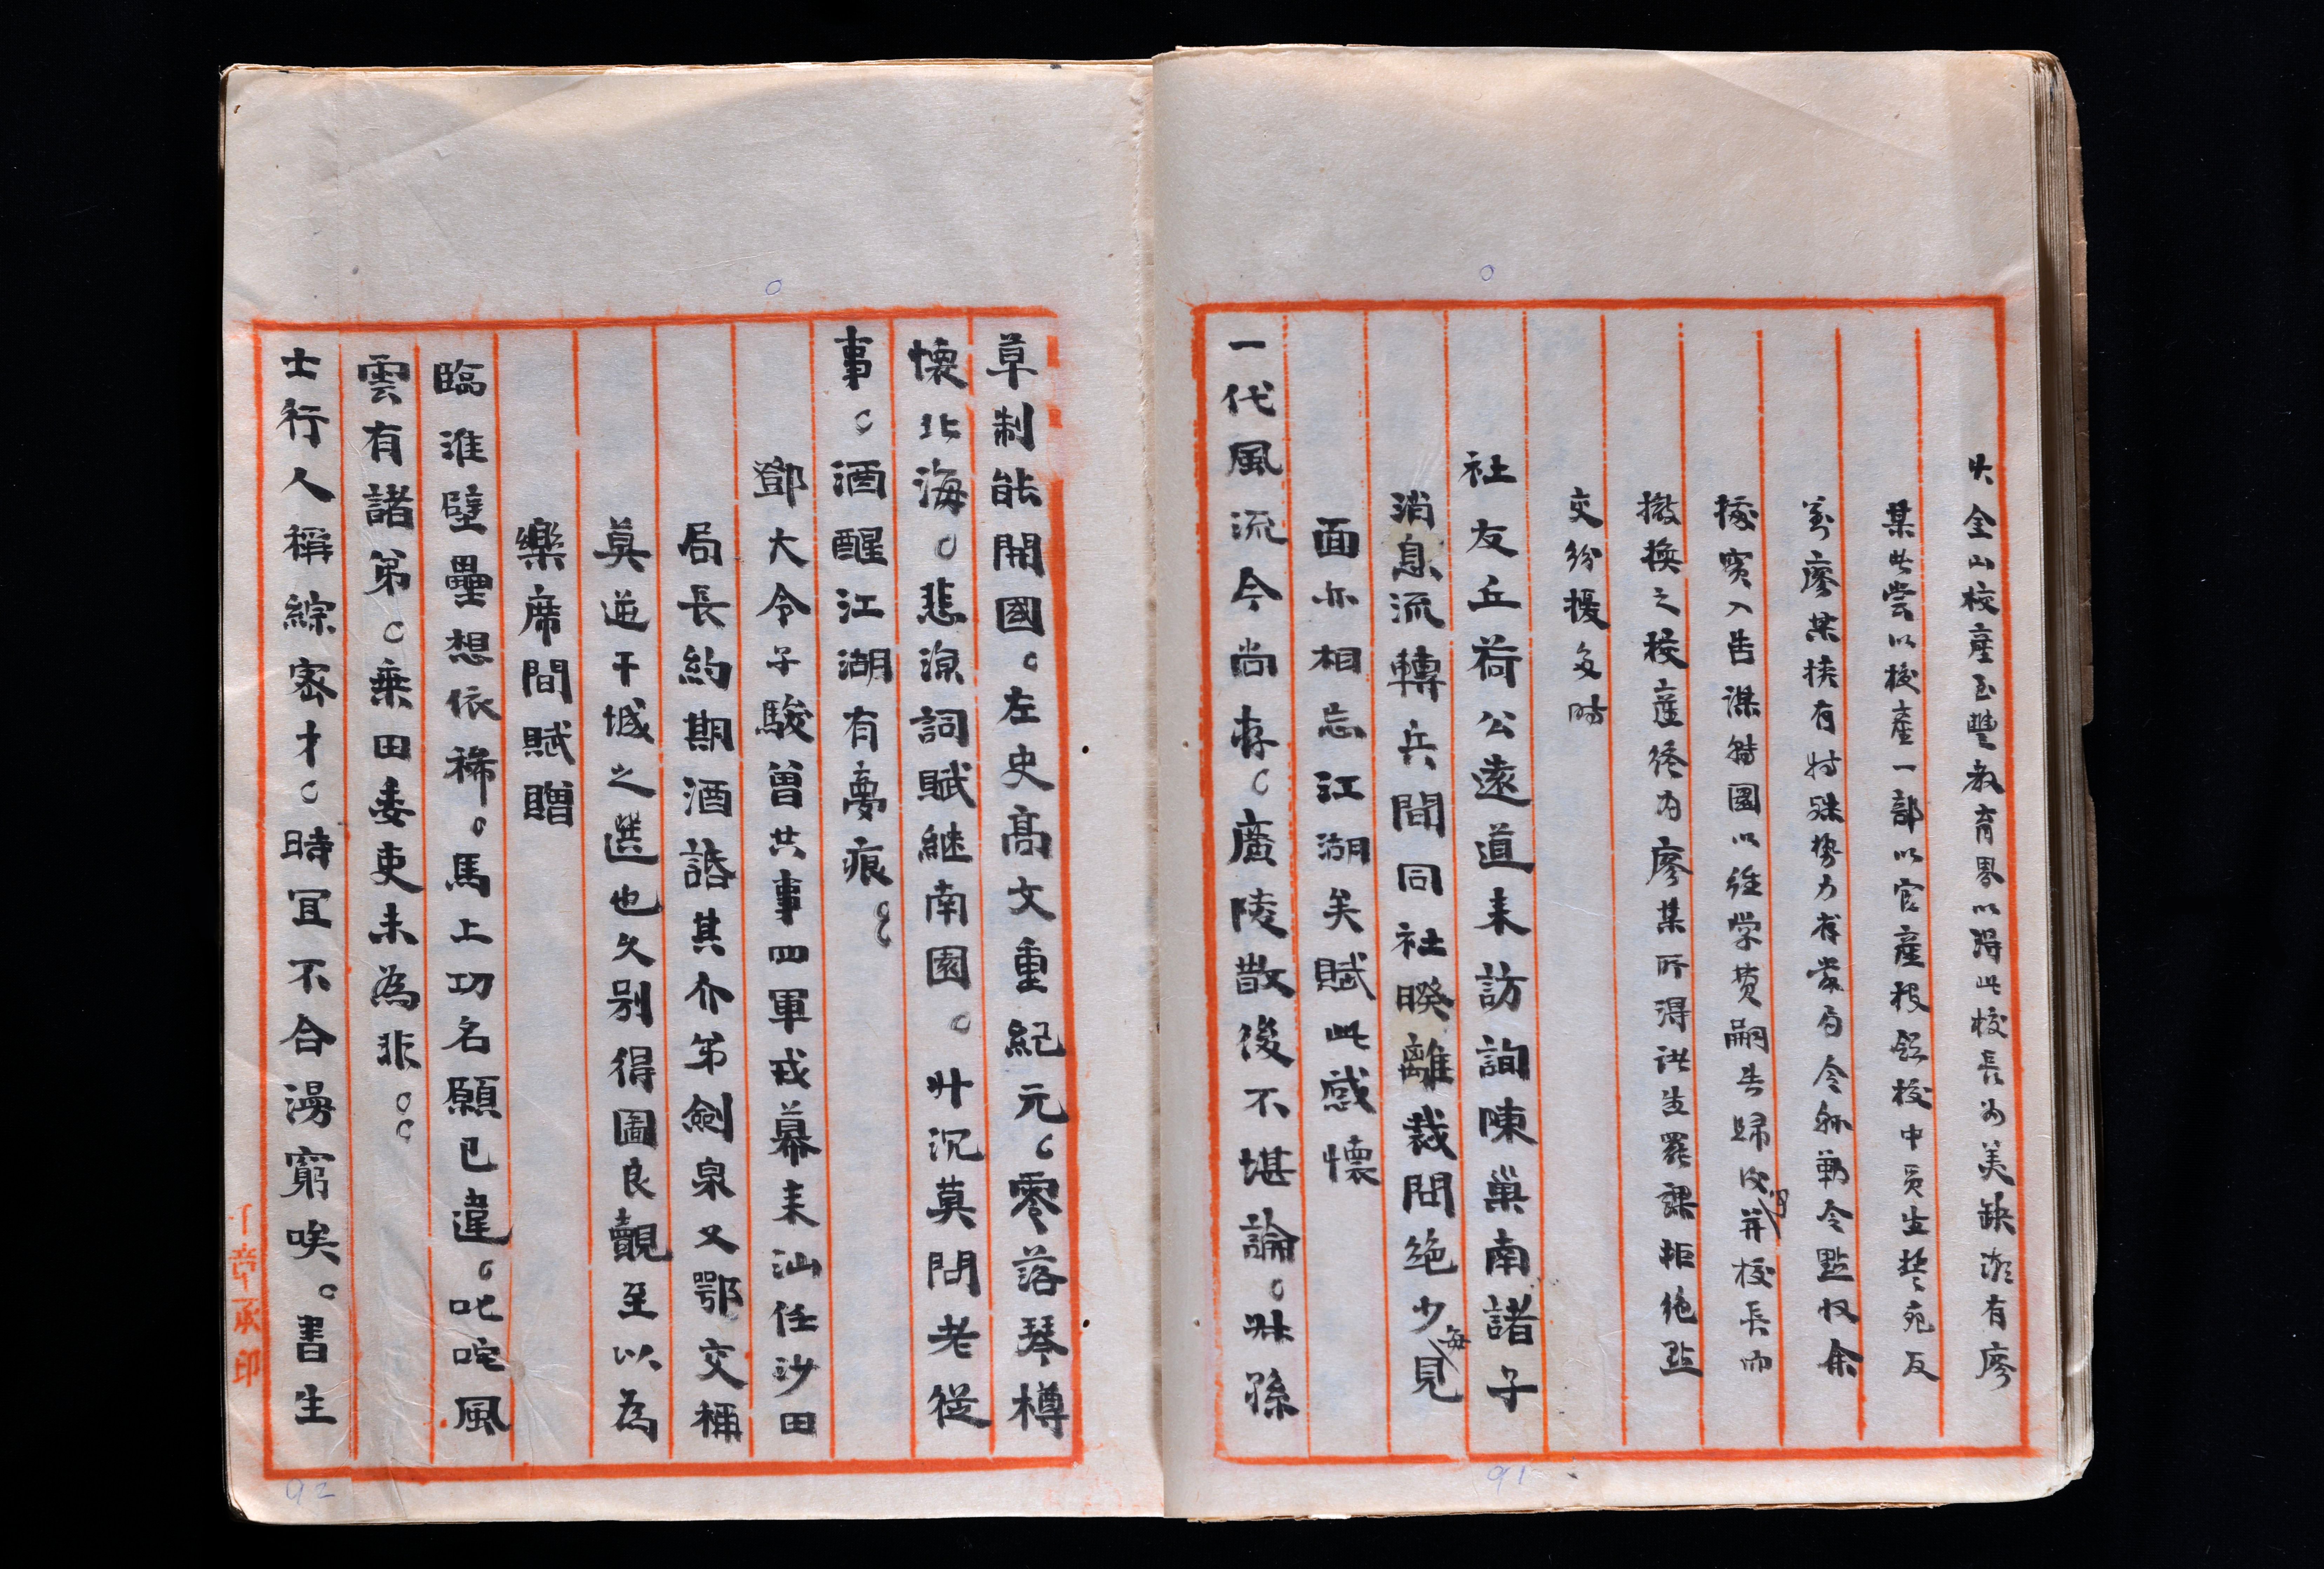 大金山校產至豐教育界以得此校長為美缺潮有廖
某者嘗以校產一部以官產投領校中員生楚宛反
對廖某挾有特殊勢力存當局令縣勒令點收余
據實入告謀解圍以維學費嗣告歸後并校長而
撤換之校產終為廖某所得諸生罷課拒絕點
交紛擾多時
社友丘荷公遠道來訪詢陳巢南諸子
消息流轉兵間同社暌離裁問絕少每見
面亦相忘江湖矣賦此感懷
一代風流今尚存。廣陵散後不堪論。叔孫
草制能開國。左史高文重紀元。零落琴樽
懷北海。悲涼詞賦繼南園。升沉莫問老從
事。酒醒江湖有夢痕。。
鄧大令子駿曾共事四軍戎幕來汕任沙田
局長約期酒譜其介弟劍泉又鄂交稱
莫逆干城之選也久別得圖良覿至以為
樂席間賦贈
臨淮壁壘想依稀。馬上功名願已違。叱咤風
雲有諸弟。乘田委吏未為非。。
士行人稱綜密才。時宜不合湯窮唉。書生
91
92